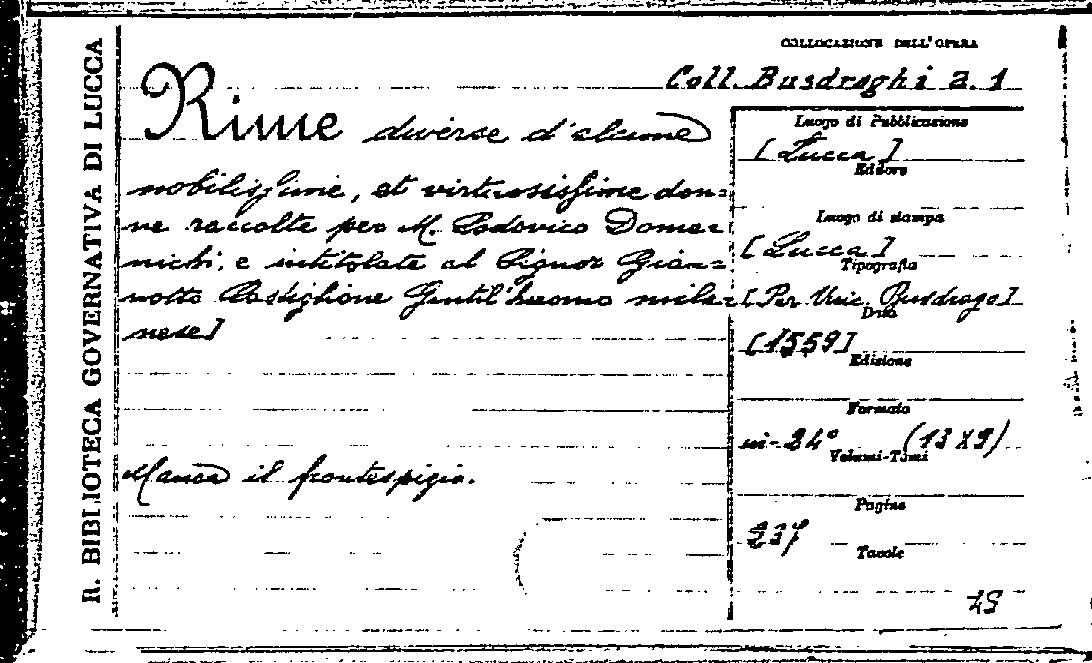 R. BIBLIOTECA GOVERNATIVA DI LUCCA
COLLOCAZIONE DELL'OPERA
Coll. Busdraghi 2. 1
Rime diverse d'alcune
nobilissime, et virtuosissime don=
ne raccolte per M. Lodovico Dome=
nichi, e intitolate al Signor Gian=
notto Castiglione Gentil'huomo mila=
nese]
Manca il frontespizio.
Luogo di Pubblicazione
[Lucca]
Editore
Luogo di stampa
[Lucca]
Tipografia
[Per Vinc. Busdrago]
Data
[1559]
Edizione
Formato
in-24° (13 X 9)
Volumi-Tomi
Pagine
237
Tavole